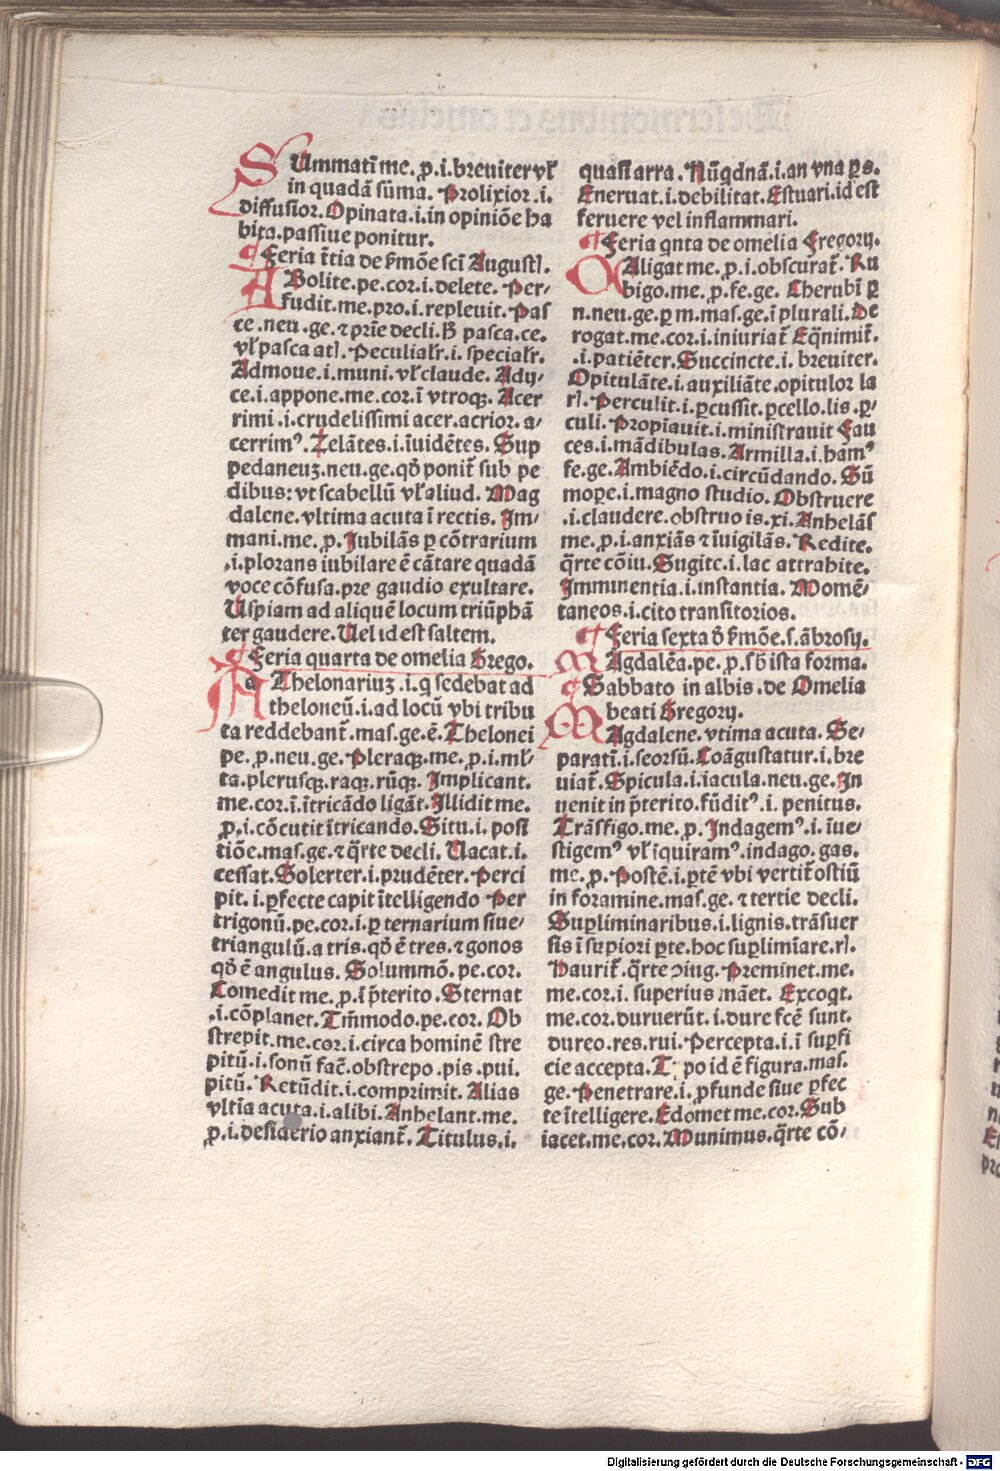 SUmmatī me. ꝓ. i. breuiter vł
in quadā sūma. Prolixior. i.
diffusior. Opinata. i. in opiniōe ha
bita. passiue ponitur.
¶ Feria t̄tia de s̄mōe scī Augustī.
ABolite. pe. cor. i. delete. Per⸗
fudit. me. pro. i. repleuit. Pas
ce. neu. ge. ⁊ p̄rie decli. S̄ pasca. ce.
vł pasca atī. Peculiałr. i. specialr̄.
Admoue. i. muni. vł claude. Adij⸗
ce. i. appone. me. cor. ī vtroqꝫ. Acer
rimi. i. crudelissimi acer. acrior. a⸗
cerrimꝰ. Zelātes. i. īuidētes. Sup
pedaneuꝫ. neu. ge. qđ ponit̄ sub pe
dibus: vt scabellū vł aliud. Mag
dalene. vltima acuta ī rectis. Im⸗
mani. me. ꝓ. Iubilās ꝑ cōtrarium
.i. plorans iubilare ē cātare quadā
voce cōfusa. pre gaudio exultare.
Uspiam ad aliquē locum triūphā
ter gaudere. Uel id est saltem.
¶ Feria quarta de omelia Grego.
a Thelonariuꝫ. i. q sedebat ad
theloneū. i. ad locū vbi tribu
ta reddebant̄. mas. ge. ē. Thelonei
pe. ꝓ. neu. ge. Pleraqꝫ. me. ꝓ. i. mł⸗
ta. plerusqꝫ. raqꝫ. rūqꝫ. Implicant.
me. cor. ī. ītricādo ligāt. Illidit me.
ꝓ. i. cōcutit ītricando. Situ. i. posi
tiōe. mas. ge. ⁊ q̄rte decli. Uacat. i.
cessat. Solerter. i. prudēter. Perci
pit. i. ꝑfecte capit ītelligendo Per
trigonū. pe. cor. i. ꝑ ternarium siue⸗
triangulū. a tris. qđ ē tres. ⁊ gonos
qđ ē angulus. Solummō. pe. cor.
Comedit me. ꝓ. ī p̄terito. Sternat
.i. cōplanet. Tm̄modo. pe. cor. Ob
strepit. me. cor. i. circa hominē stre
pitū. i. sonū fac̄. obstrepo. pis. pui.
pitū. Retūdit. i. comprimit. Alias
vltīa acuta. i. alibi. Anhelant. me.
ꝓ. i. desiderio anxiant̄. Titulus. i.
quasi arra. Nūqdnā. i. an vna ꝑs.
Eneruat. i. debilitat. Estuari. id est
feruere vel inflammari.
¶ Feria qnta de omelia Gregorij.
CAligat me. ꝓ. i. obscurat̄. Ru
bigo. me. ꝓ. fe. ge. Cherubī ꝑ
n. neu. ge. ꝑ m. mas. ge. ī plurali. De
rogat. me. cor. i. iniuriat̄ Eq̄nimit̄.
.i. patiēter. Succincte. i. breuiter.
Opitulāte. i. auxiliāte. opitulor la
rī. Perculit. i. ꝑcussit. ꝑcello. lis. ꝑ⸗
culi. Propiauit. i. ministrauit Fau
ces. i. mādibulas. Armilla. i. hamꝰ
fe. ge. Ambiēdo. i. circūdando. Sū
mope. i. magno studio. Obstruere
.i. claudere. obstruo is. xi. Anhelās
me. ꝓ. i. anxiās ⁊ īuigilās. Redite.
q̄rte cōiu. Sugite. i. lac attrahite.
Imminentia. i. instantia. Momē⸗
taneos. i. cito transitorios.
¶ Feria sexta đ s̄mōe. s. ābrosij.
MAgdalēa. pe. ꝓ. sb̄ ista forma.
¶ Sabbato in albis. de Omelia
beati Gregorij.
MAgdalene. vtima acuta. Se⸗
paratī. i. seorsū. Coāgustatur. i. bre
uiat̄. Spicula. i. iacula. neu. ge. In
uenit in p̄terito. fūditꝰ. i. penitus.
Trāsfigo. me. ꝓ. Indagemꝰ. i. īue⸗
stigemꝰ vł īquiramꝰ. indago. gas.
me. ꝓ. Postē. i. ꝑtē vbi vertit̄ ostiū
in foramine. mas. ge. ⁊ tertie decli.
Suꝑliminaribus. i. lignis. trāsuer
sis ī supiori ꝑte. hoc suꝑlimīare. rī.
Haurit̄. q̄rte ꝯiug. Preminet. me.
me. cor. i. superius māet. Excoqt.
me. cor. duruerūt. i. dure fcē sunt.
dureo. res. rui. Percepta. i. ī suꝑfi
cie accepta. T po id ē figura. mas.
ge. Penetrare. i. ꝓfunde siue ꝑfec
te ītelligere. Edomet me. cor. Sub
iacet. me. cor. Munimus. q̄rte cō⸗
Digitalisierung gefördert durch die Deutsche Forschungsgemeinschaft - DFG